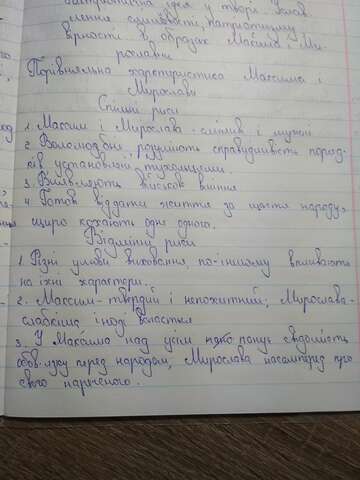 патріотична ідея у творі. Услав
лення сміливості, патріотизму
вірності в образах Максима і Ми
рослави
Порівняльна характеристика Максима і
Мирослави
Спільні риси
1. Максим і Мирослава - сміливі і мужні
2. Волелюбні, розуміють справидливість поряд
ків установлені тухольцями.
3. Виявляють військові вміння
4. Готові віддати життя за щастя народу,
щиро кохають одне одного.
Відмінні риси
1. Різні умови виховання, по-іншому впливають
на їхні характери.
2. Максим - твердий і непохитний; Мирослава-
слабкіша, іноді
3. У Максима над усім панує свідомість
обов. язку перед народом, Мирослава насамперед про
свого нареченого.